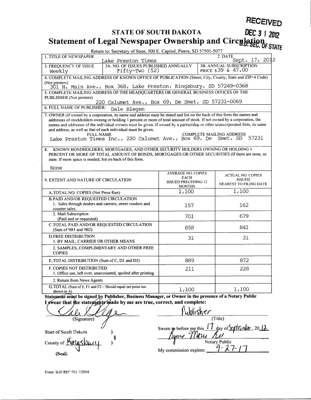 RECEIVED
DEC 31 2012
S.D. SEC. OF STATE
STATE OF SOUTH DAKOTA
Statement of Legal Newspaper Ownership and Circulation
Return to: Secretary of State, 500 E. Capitol, Pierre, SD 57501-5077
1. TITLE OF NEWSPAPER
Lake Preston Times
2. DATE
Sept. 17, 2012
3. FREQUENCY OF ISSUE
Weekly
3A. NO. OF ISSUES PUBLISHED ANNUALLY
Fifty-Two (52)
3B. ANNUAL SUBSCRIPTION
PRICE $39 & 47.00
4. COMPLETE MAILING ADDRESS OF KNOWN OFFICE OF PUBLICATION (Street, City, County, State and ZIP+4 Code)
(Not printers)
301 N. Main Ave., Box 368, Lake Preston, Kingsbury, SD 57249-0368
5. COMPLETE MAILING ADDRESS OF THE HEADQUARTERS OF GENERAL BUSINESS OFFICES OF THE
PUBLISHER (Not printer)
220 Calumet Ave., Box 69, De Smet, SD 57231-0069
6. FULL NAME OF PUBLISHER:
Dale Blegen
7. OWNER (If owned by a corporation, its name and address must be stated and list on the back of this form the names and
addresses of stockholders owning or holding 1 percent or more of total amount of stock. If not owned by a corporation, the
names and addresses of the individual owners must be given. If owned by a partnership or other unincorporated firm, its name
and address, as well as that of each individual must be given.
FULL NAME
COMPLETE MAILING ADDRESS
Lake Preston Times Inc., 220 Calumet Ave., Box 69, De Smet, SD 57231
8. KNOWN BONDHOLDERS, MORTGAGES, AND OTHER SECURITY HOLDERS OWNING OR HOLDING 1
PERCENT OR MORE OF TOTAL AMOUNT OF BONDS, MORTGAGES OR OTHER SECURITIES (If there are none, so
state. If more space is needed, list on back of this form.
None
9. EXTENT AND NATURE OF CIRCULATION
AVERAGE NO. COPIES
EACH
ISSUED PRECEDING 12
MONTHS
ACTUAL NO. COPIES
ISSUED
NEAREST TO FILING DATE
A. TOTAL NO. COPIES (Net Press Run)
1,100
1,100
B. PAID AND/OR REQUESTED CIRCULATION
1. Sales through dealers and carriers, street vendors and
counter sales.
157
162
2. Mail Subscription
(Paid and or requested)
701
679
C. TOTAL PAID AND/OR REQUESTED CIRCULATION
(Sum of 9B1 and 9B2)
858
841
D. FREE DISTRIBUTION
1. BY MAIL, CARRIER OR OTHER MEANS
31
31
2. SAMPLES, COMPLIMENTARY AND OTHER FREE
COPIES
E. TOTAL DISTRIBUTION (Sum of C, D1 and D2)
889
872
F. COPIES NOT DISTRIBUTED
1. Office use, left over, unaccounted, spoiled after printing
211
228
2. Return from News Agents
G. TOTAL (Sum of E, F1 and F2 - Should equal net press run
shown in A)
1,100
1,100
Statement must be signed by Publisher, Business Manager, or Owner in the presence of a Notary Public
I swear that the statements made by me are true, correct, and complete:
Publisher
(Signature)
(Title)
State of South Dakota )
County of Kingsbury )
§
(Seal)
Sworn to before me this 17 day of September, 2012
Notary Public
My commission expires: 9-27-17